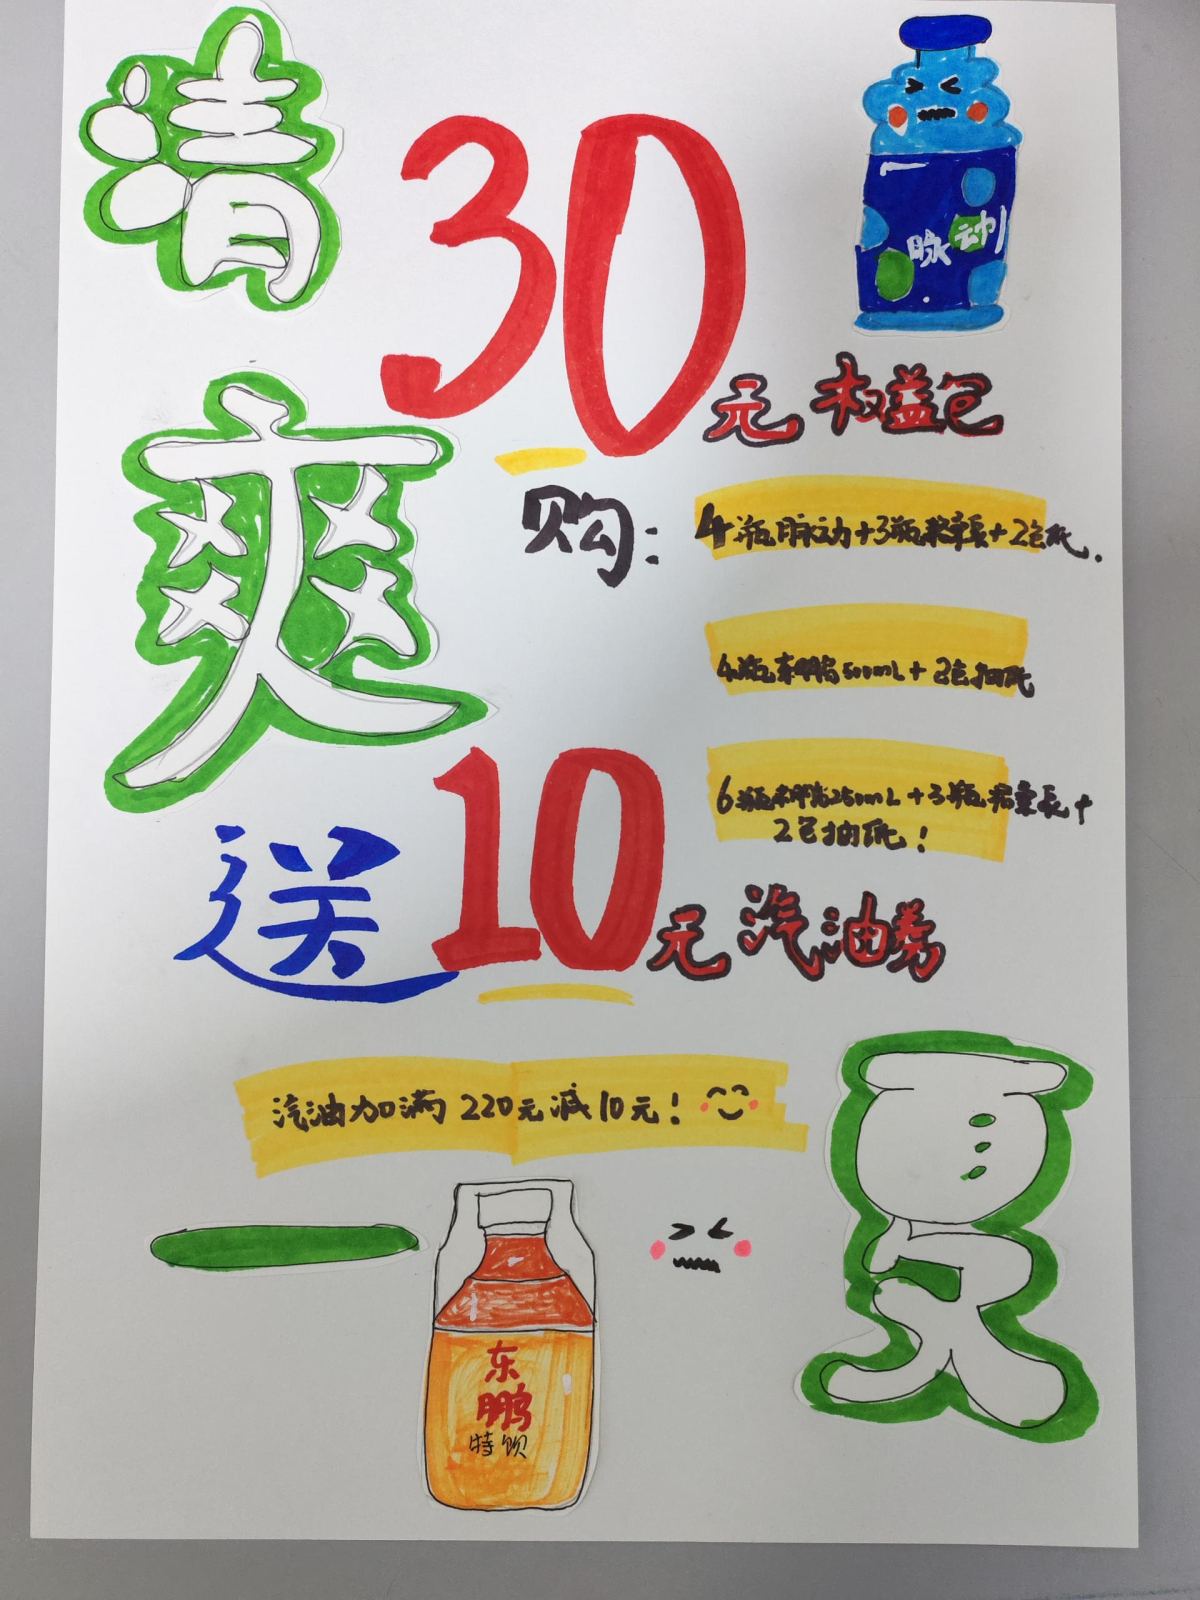 清爽一夏
30元权益包
脉动
购：
4瓶脉动+3瓶浆果晨+2包纸.
4瓶东鹏500mL+2包抽纸
6瓶东鹏250mL+3瓶
2包抽纸！
送10元汽油券
汽油加满220元减10元！
东鹏
特饮